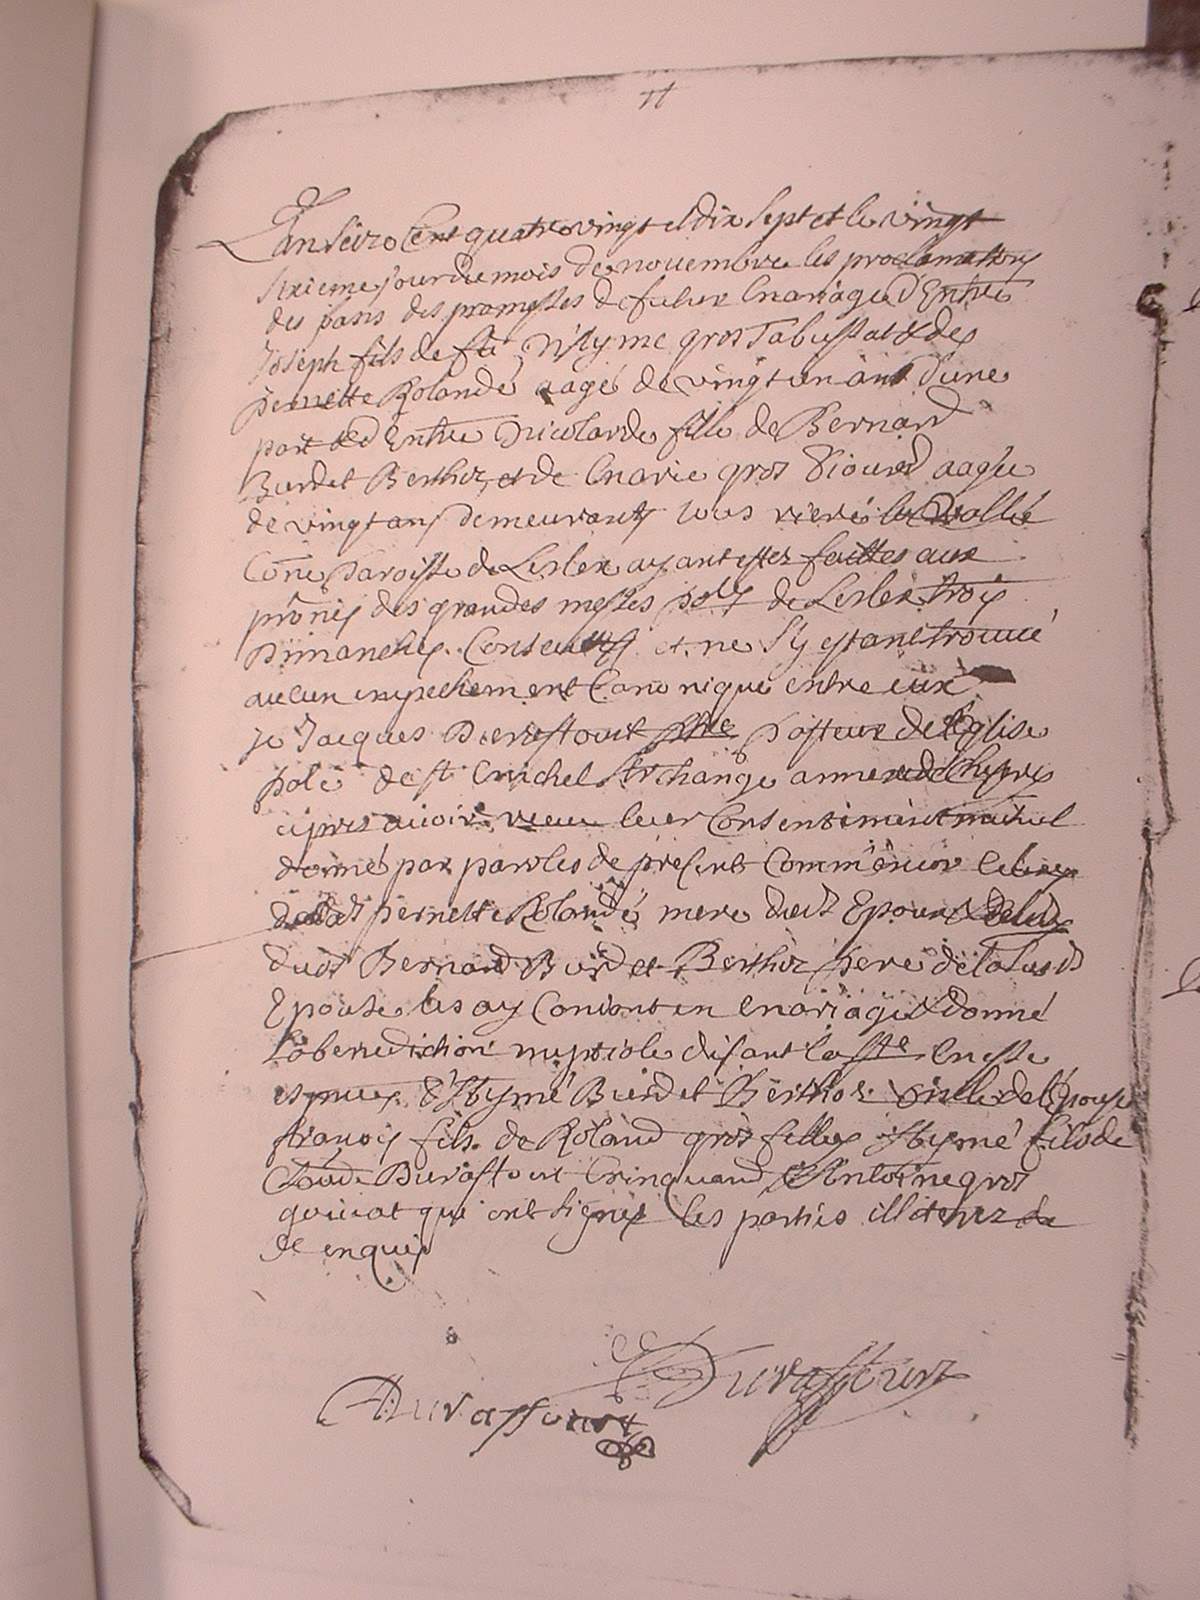 L'an seize Cent quatre vingt et dix sept et le vingt
sixieme jour du mois de novembre les proclamations
des bans des promesses de futur mariage d'Entre
Joseph fils de fû Aymé gros Tabussat & de
pernette Rolandé aagé de vingt un ans d'une
part & d'Entre Nicolarde fille de Bernard
Burdet Berthoz, et de Marie gros aagée
de vingt ans demeurants tous riere la vallée
Cõne paroisse de Leslex ayant estez faittes aux
prônes des grandes messes de Leslex trois
Dimanches Consecutifs et ne s'y estant trouvé
aucun empechement Canonique entre eux
je Jacques Duraffourt pbre pasteur de l'Eglise
de st michel Archange annexe de
apres avoir leur Consentement mutuel
donné par paroles de present
pernette Rolandé mere dud't Epoux &
dud't Bernard Burdet Berthoz pere de la
Epouse les ay Conioint en mariage & donné
la benediction nuptiale disant la ste messe
Aymé Burdet Berthoz de l'Epouse
françois fils de Roland gros fillex Aymé fils de
Claude Duraffourt Crinquand & Antoine gros
goiuat qui ont signés les parties illiterez de
de enquis
Duraffourt Duraffourt